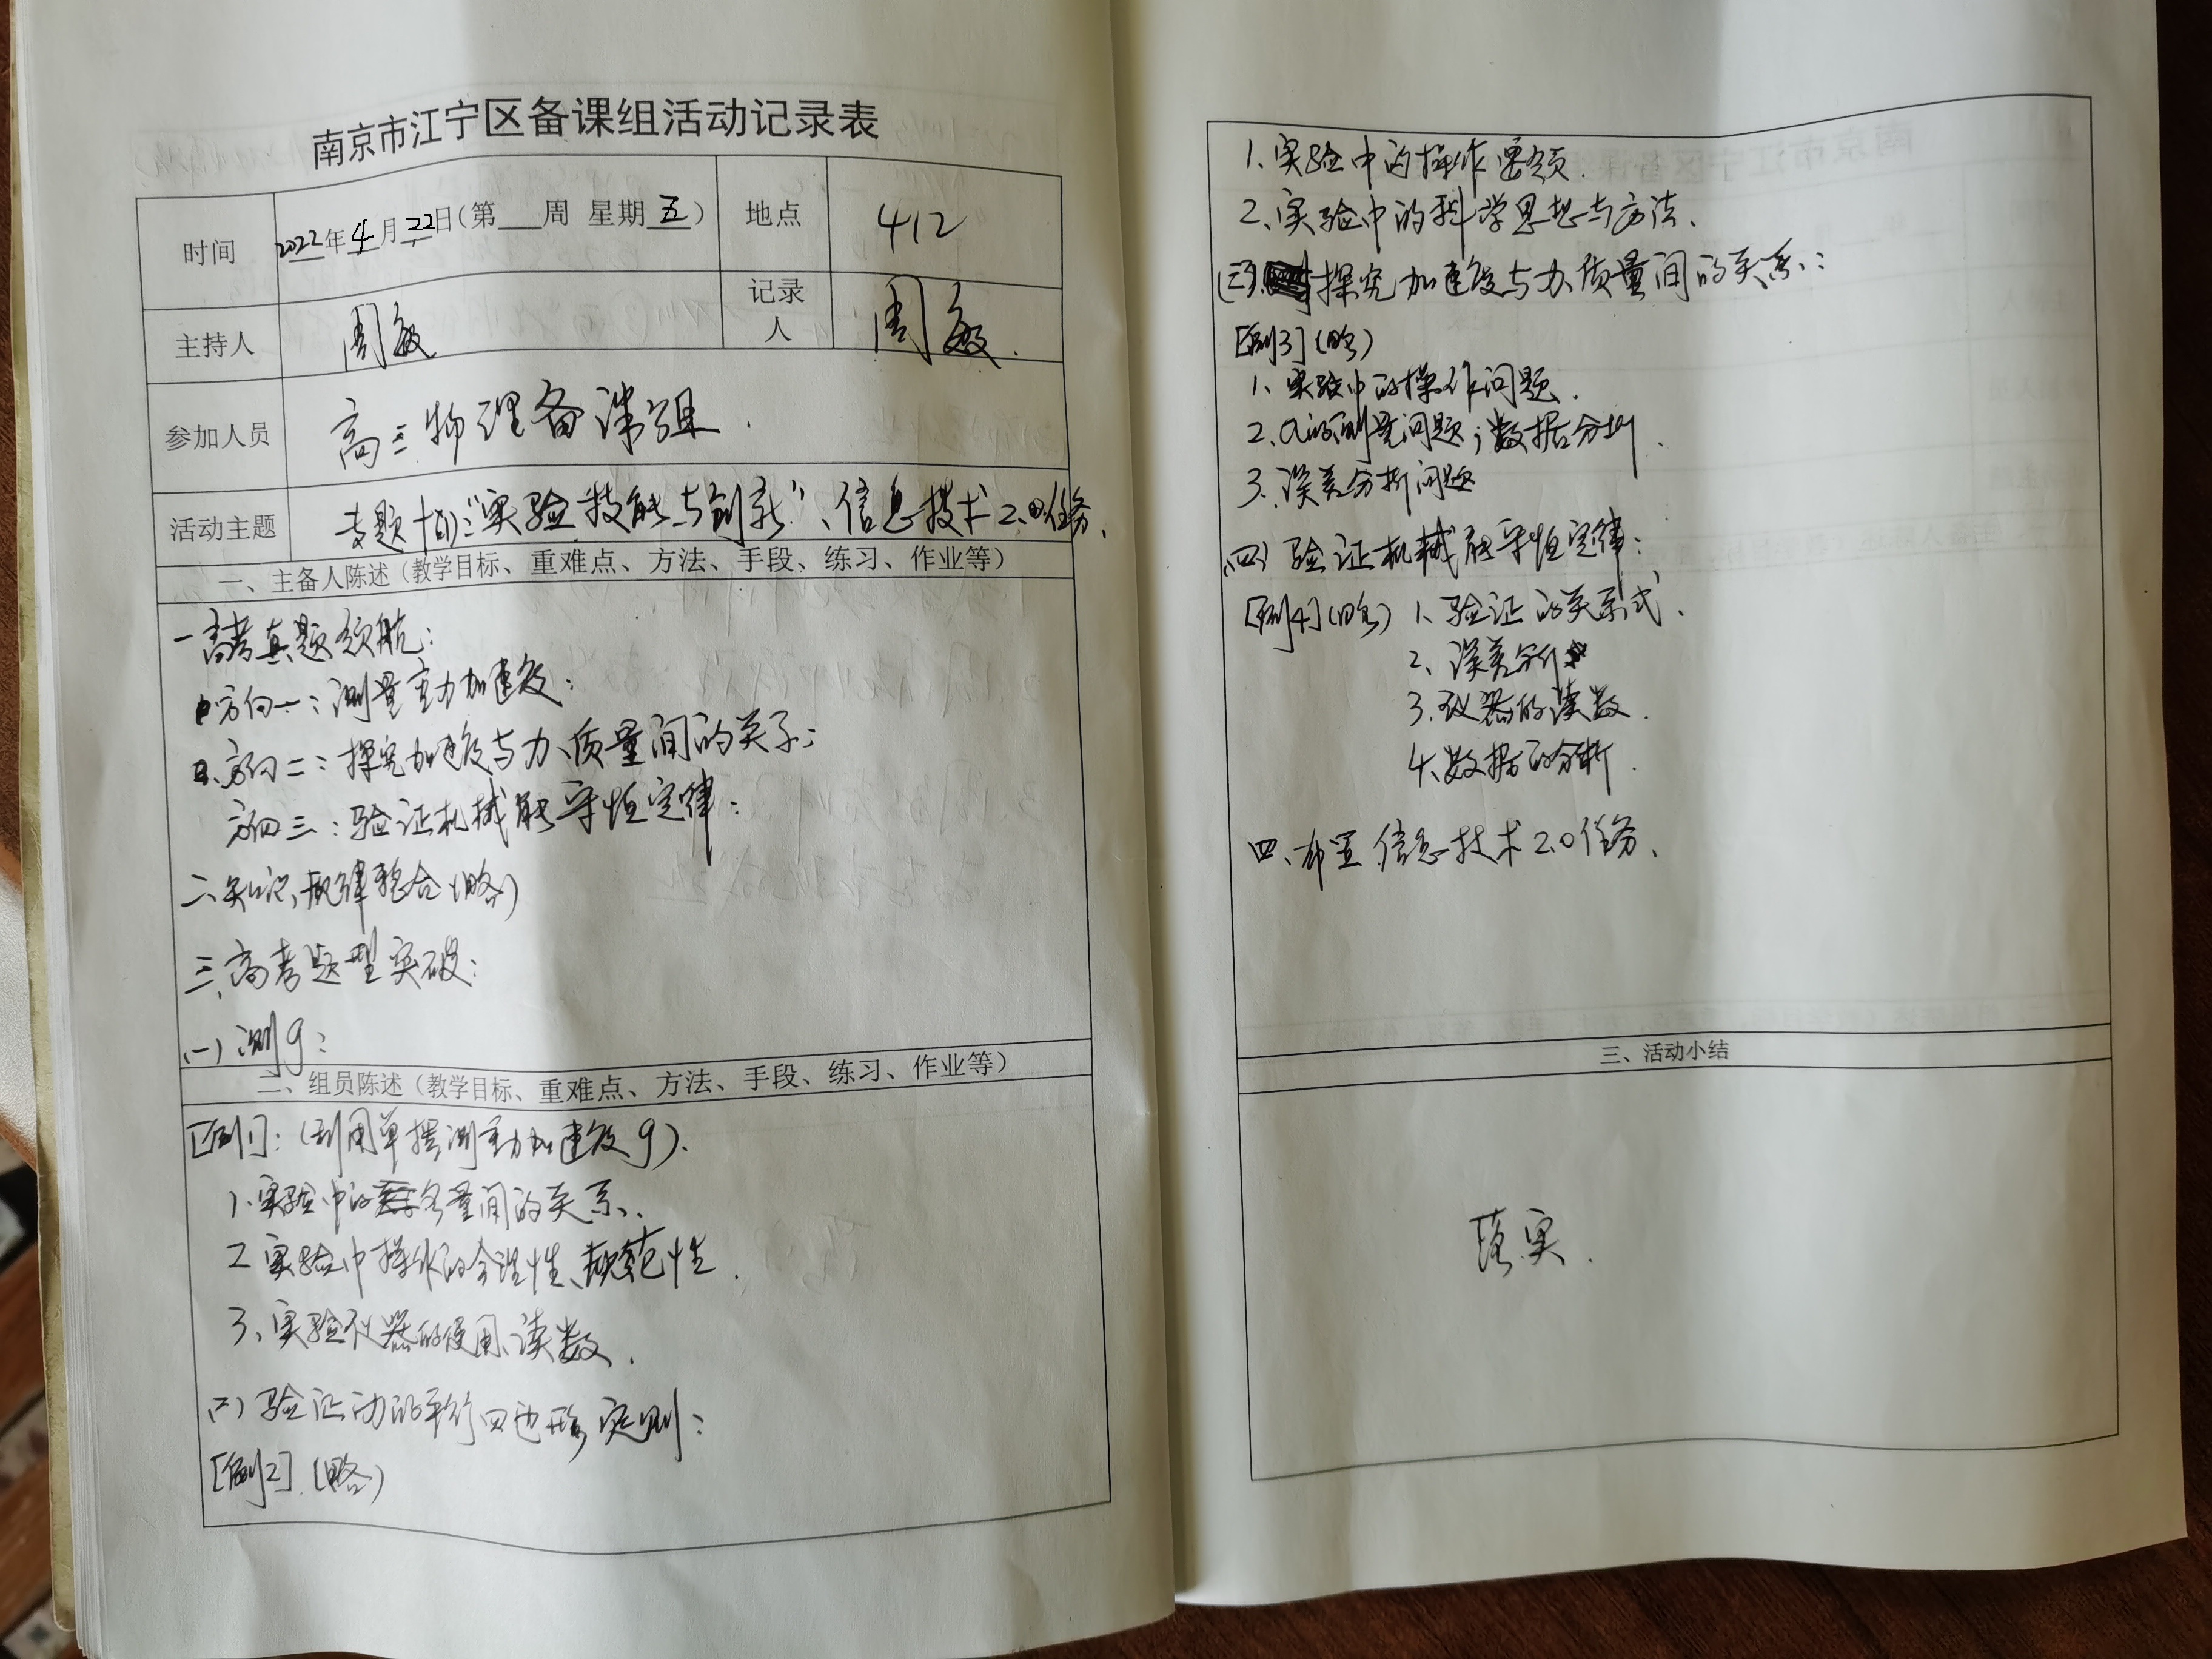 南京市江宁区备课组活动记录表
时间 2022年4月22日（第__周 星期五） 地点 412
主持人 周敏 记录人 周敏.
参加人员 高三物理备课组.
活动主题 专题十(1):“实验技能与创新”、信息技术2.0任务、
一、主备人陈述（教学目标、重难点、方法、手段、练习、作业等）
一高考真题领航:
方向一:测量重力加速度:
方向二:探究加速度与力、质量间的关系:
方向三:验证机械能守恒定律:
二、知识、规律整合(略)
三、高考题型突破:
(一)测g:
二、组员陈述（教学目标、重难点、方法、手段、练习、作业等）
[例1]:(利用单摆测重力加速度g).
1、实验中的各量间的关系.
2 实验中操作的合理性、规范性.
3、实验仪器的使用、读数.
(二)验证力的平行四边形定则:
[例2].(略)
1、实验中的操作要领.
2、实验中的科学思想与方法、
(三)探究加速度与力、质量间的关系:
[例3](略)
1、实验中的操作问题.
2、a的测量问题;数据分析.
3、误差分析问题
(四)验证机械能守恒定律:
[例4](略) 1、验证的关系式、
2、误差分析
3、仪器的读数.
4、数据的分析.
四、布置信息技术2.0任务、
三、活动小结
落实.